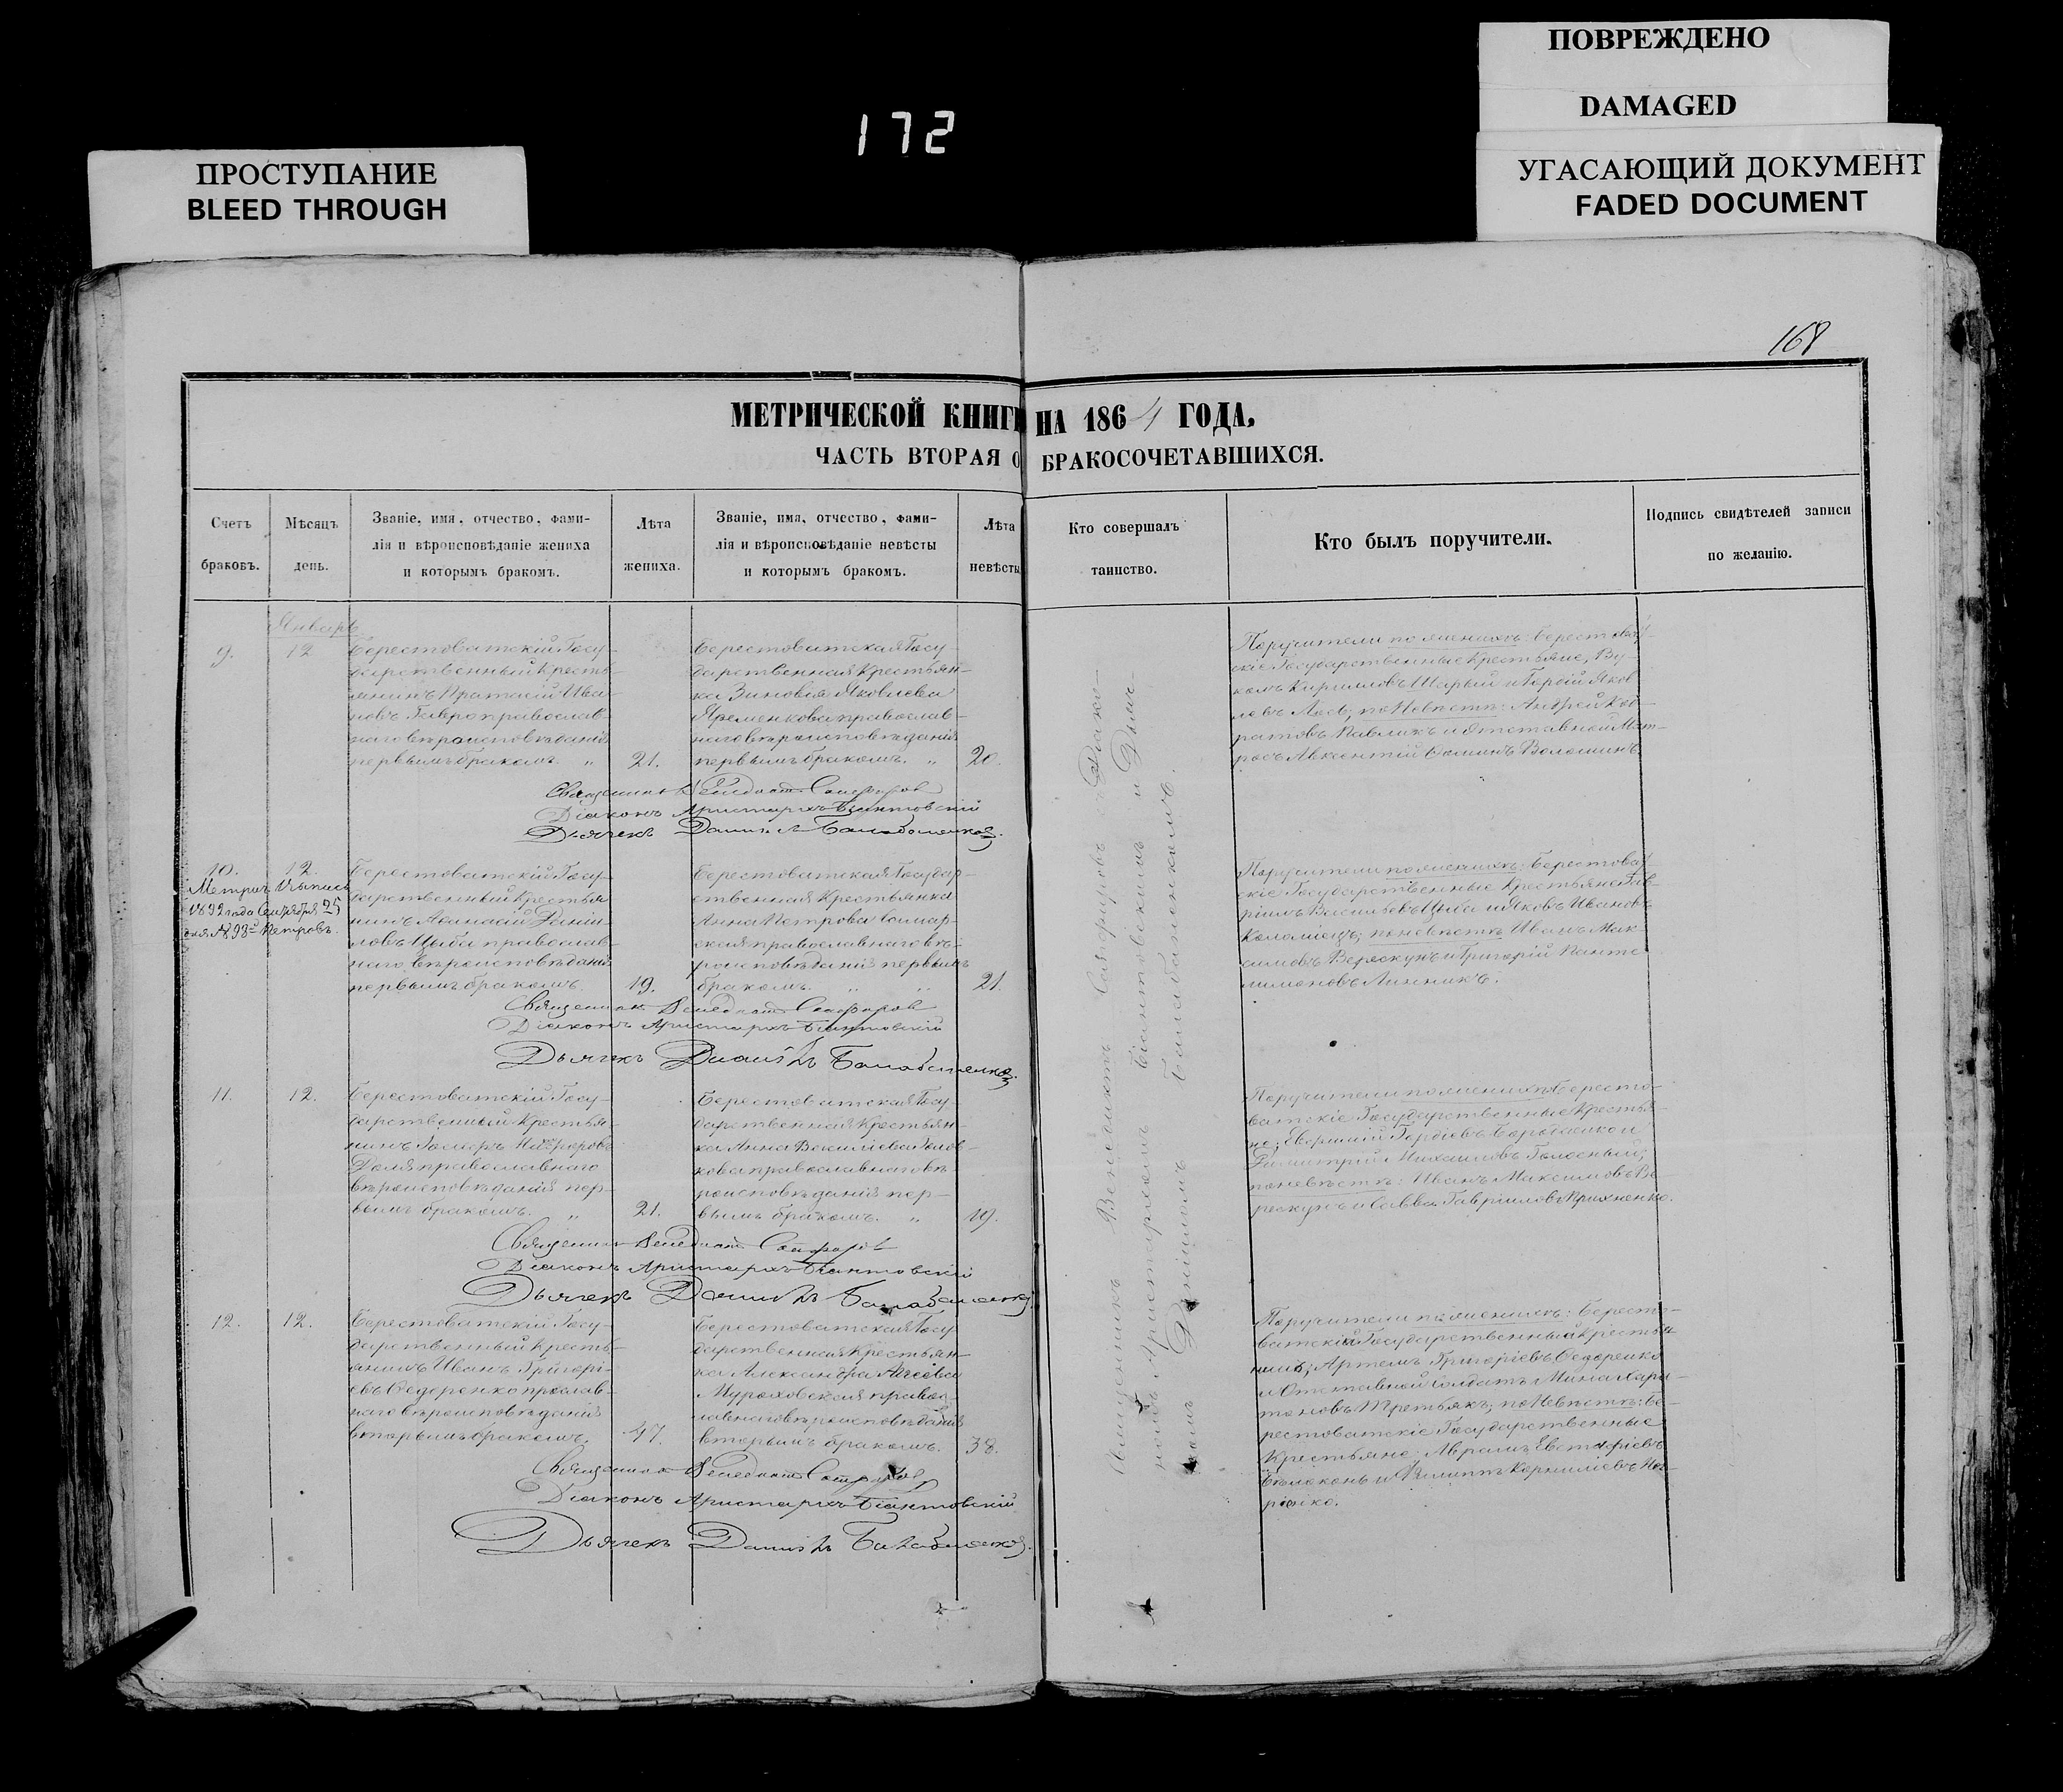 ПОВРЕЖДЕНО
DAMAGED
УГАСАЮЩИЙ ДОКУМЕНТ
FADED DOCUMENT
172
ПРОСТУПАНИЕ
BLEED THROUGH
168
МЕТРИЧЕСКОЙ КНИГИ НА 1864 ГОДА,
ЧАСТЬ ВТОРАЯ О БРАКОСОЧЕТАВШИХСЯ.
Счетъ
браковъ.
Мѣсяцъ
день.
Званіе, имя, отчество, фами-
лія и вѣроисповѣданіе жениха
и которымъ бракомъ.
Лѣта
жениха.
Званіе, имя, отчество, фами-
лія и вѣроисповѣданіе невѣсты
и которымъ бракомъ.
Лѣта
невѣсты
Кто совершалъ
таинство.
Кто былъ поручители.
Подпись свидѣтелей записи
по желанію.
Январь
9.
12
Берестоватскій Госу-
дарственный Кресть-
янинъ Протасій Ива-
новъ православ-
наго вѣроисповѣданія
первымъ бракомъ. „
21.
Берестоватская Госу-
дарственная Крестьян-
ка Зиновія Яковлева
Яременкова православ-
наго вѣроисповѣданія
первымъ бракомъ. „
20.
Поручители по женихѣ: Берестоват-
скіе Государственные Крестьяне, Ву-
колъ Кирилловъ Шарый и Гордій Яков
левъ Лось; по Невѣстѣ: Андрей Код-
ратовъ Павликъ и Отставной Мат-
росъ Авксентій Волошинъ
Священникъ Венедиктъ Сапфировъ
Діаконъ Аристархъ Біантовскій
Дьячекъ Даніилъ Балабаненковъ.
10.
12.
Метрич. Выпись
1892 года Сентября 25
дня № 98й Петровъ.
Берестоватскій Госу-
дарственный Крестья
нинъ Аѳанасій Даніи-
ловъ Цыба православ-
наго вѣроисповѣданія
первымъ бракомъ.
19.
Берестоватская Государ-
ственная Крестьянка
Анна Петрова
православнаго вѣ-
роисповѣданія первымъ
бракомъ. „ „
21.
Поручители по женихѣ: Берестоват-
скіе Государственные Крестьяне Гав-
ріилъ Васильевъ Цыба и Яковъ Ивановъ
Коломіецъ; по невѣстѣ Иванъ Мак-
симовъ Верескунъ и Григорій Панте
лимоновъ Линникъ.
Священникъ Венедиктъ Сапфировъ
Діаконъ Аристархъ Біантовскій
Дьячекъ Даніилъ Балабаненковъ.
11.
12.
Берестоватскій Госу-
дарственный Крестья-
нинъ
Доля православнаго
вѣроисповѣданія пер-
вымъ бракомъ. „
21.
Берестоватская Госу-
дарственная Крестьян-
ка Анна Василіева
православнаго вѣ-
роисповѣданія пер-
вымъ бракомъ. „
19.
Поручители по женихѣ Бересто-
ватскіе Государственные Крестья-
не; Гордіевъ и
Димитрій Михаиловъ Голосный;
по невѣстѣ: Иванъ Максимовъ Ве-
рескунъ и Савва Гавріиловъ
Священникъ Венедиктъ Сапфировъ
Діаконъ Аристархъ Біантовскій
Дьячекъ Даніилъ Балабаненковъ
12.
12.
Берестоватскій Госу-
дарственный Кресть-
янинъ Иванъ Григорі-
евъ Ѳедоренко православ-
наго вѣроисповѣданія
вторымъ бракомъ.
47.
Берестоватская Госу
дарственная Крестьян-
ка Александра
Мураховская правос-
лавнаго вѣроисповѣданія
вторымъ бракомъ.
38.
Поручители по женихѣ: Бересто-
ватскій Государственный Крестья
нинъ; Артемъ Григоріевъ Ѳедоренко
и Отставной Солдатъ Мина Хари-
тоновъ Третьякъ; по Невѣстѣ: Бе-
рестоватскіе Государственные
Крестьяне: Аврамъ Евстафіевъ
Бѣлоконь и Филиппъ Корниліевъ
Священникъ Венедиктъ Сапфировъ
Діаконъ Аристархъ Біантовскій
Дьячекъ Даніилъ Балабаненковъ.
Священникъ Венедиктъ Сапфировъ съ Діако-
номъ Аристархомъ Біантовскимъ и Дьяч-
комъ Даніиломъ Балабаненковымъ.